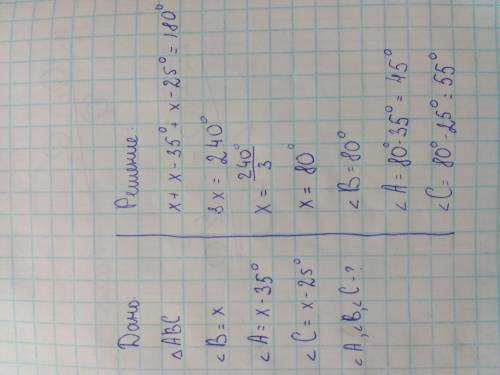 Дано
△ABC
∠B = x
∠A = x - 35°
∠C = x - 25°
∠A, ∠B, ∠C - ?
Решение:
x + x - 35° + x - 25° = 180°
3x = 240°
x = 240°/3
x = 80°
∠B = 80°
∠A = 80° - 35° = 45°
∠C = 80° - 25° = 55°